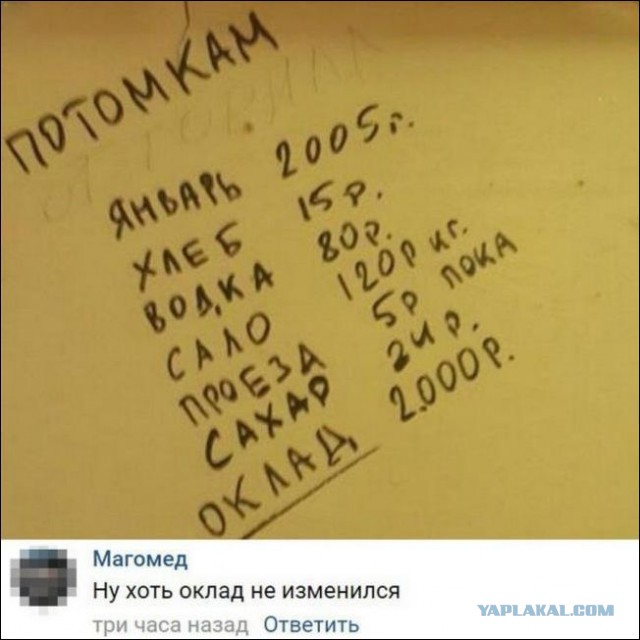 ПОТОМКАМ
ЯНВАРЬ 2005г.
ХЛЕБ 15р.
ВОДКА 80р.
САЛО 120р кг.
ПРОЕЗД 5р пока
САХАР 24р.
ОКЛАД 2.000р.
Магомед
Ну хоть оклад не изменился
три часа назад Ответить
YAPLAKAL.COM